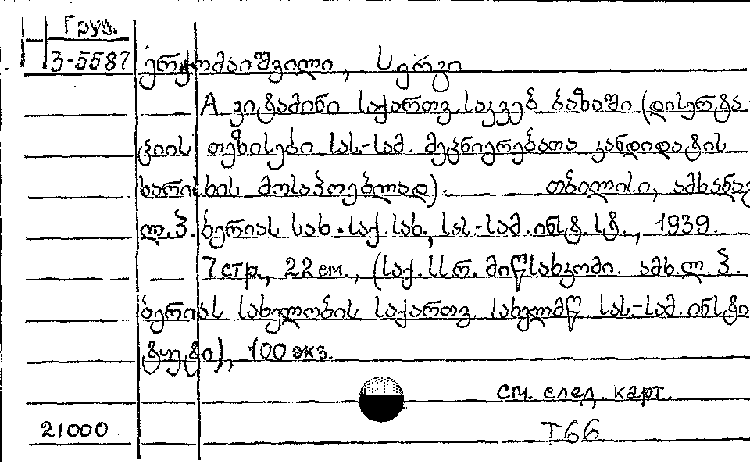 Груз.
3-5587 ერქომაიშვილი, სერგი
A ვიტამინი საქართვ. საკვებ ბაზაში (დისერტა
ციის თეზისები სას-სამ. მეცნიერებათა კანდიდატის
ხარისხის მოსაპოებლად). თბილისი, ამხანაგ
ლ.პ. ბერიას სახ. საქ. სახ. სას-სამ. ინსტ. სტ., 1939.
7 стр., 22 см., (საქ. სსრ. მიწსახკომი. ამხ. ლ. პ.
ბერიას სახელობის საქართვ. სახელმწ. სას-სამ. ინსტი
ტუტი), 100 экз.
см. след. карт.
21000 T66